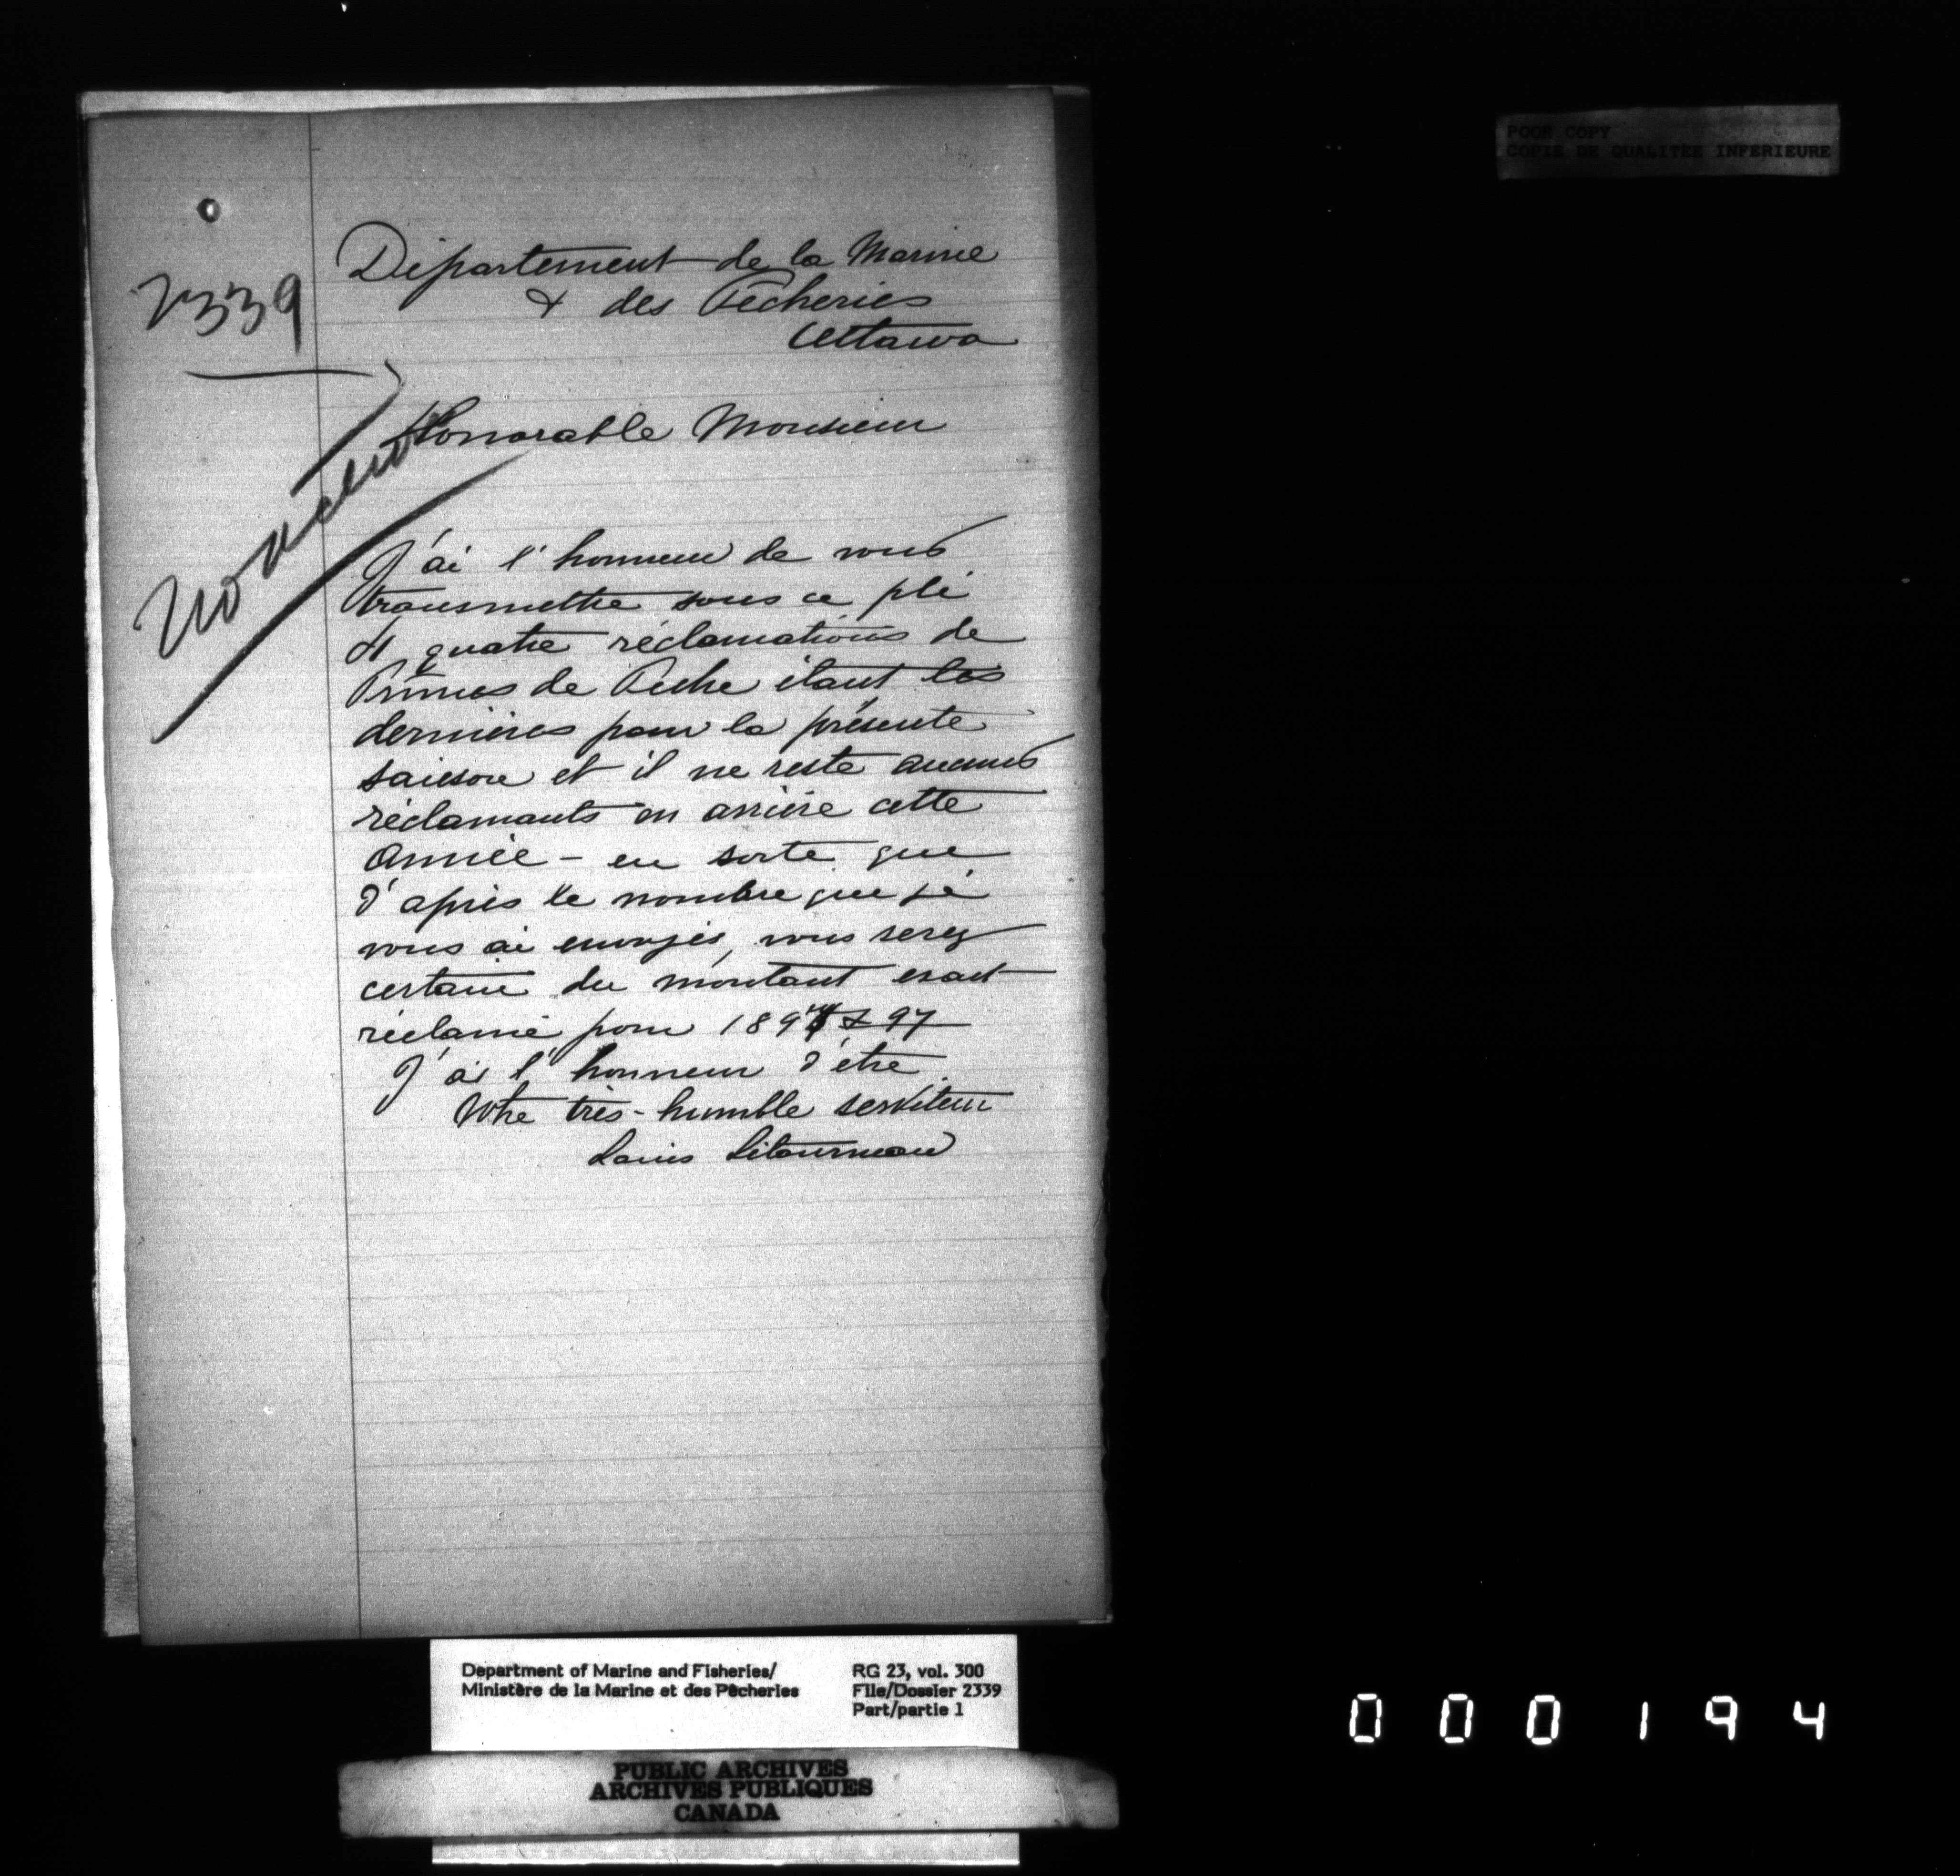 POOR COPY
COPIE DE QUALITEE INFERIEURE
2339
No action
Département de la Marine
& des Pêcheries
Ottawa
Honorable Monsieur
J'ai l'honneur de vous
transmettre sous ce pli
4 quatre réclamations de
Primes de Peche étant les
dernières pour la présente
saison et il ne reste aucuns
réclamants en arrière cette
Année - en sorte que
d'après le nombre que je
vous ai envoyés, vous serez
certain du montant exact
réclamé pour 1896 & 97
J'ai l'honneur d'etre
Votre très-humble serviteur
Louis Létourneau
Department of Marine and Fisheries/
Ministère de la Marine et des Pêcheries
RG 23, vol. 300
File/Dossier 2339
Part/partie 1
PUBLIC ARCHIVES
ARCHIVES PUBLIQUES
CANADA
000194